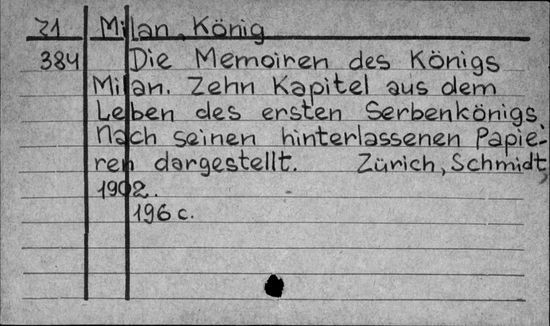 Z1 Milan, König
384 Die Memoiren des Königs
Milan. Zehn Kapitel aus dem
Leben des ersten Serbenkönigs.
Nach seinen hinterlassenen Papie-
ren dargestellt. Zürich, Schmidt,
1902.
196 c.